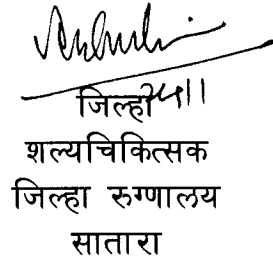 जिल्हा
शल्यचिकित्सक
जिल्हा रुग्णालय
सातारा